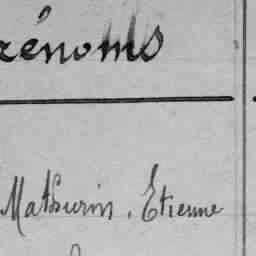 rénoms
Mathurin, Etienne